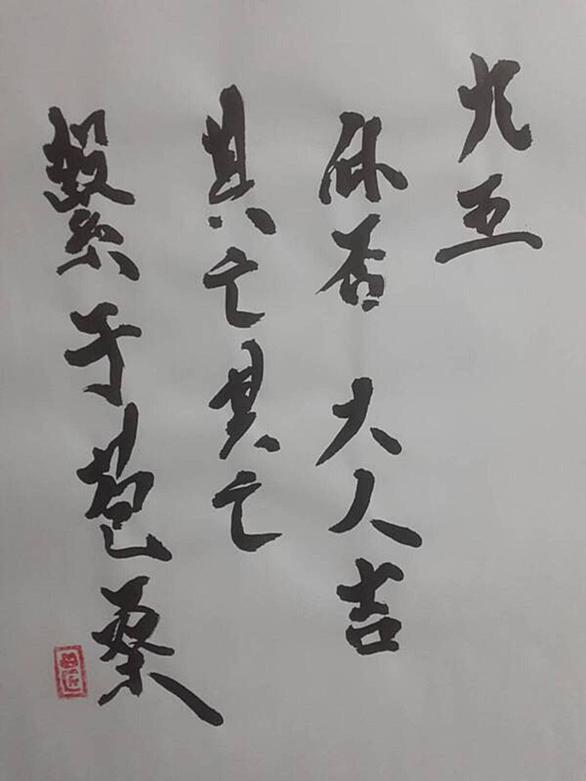 九五
休否 大人吉
其亡其亡
繫于苞桑